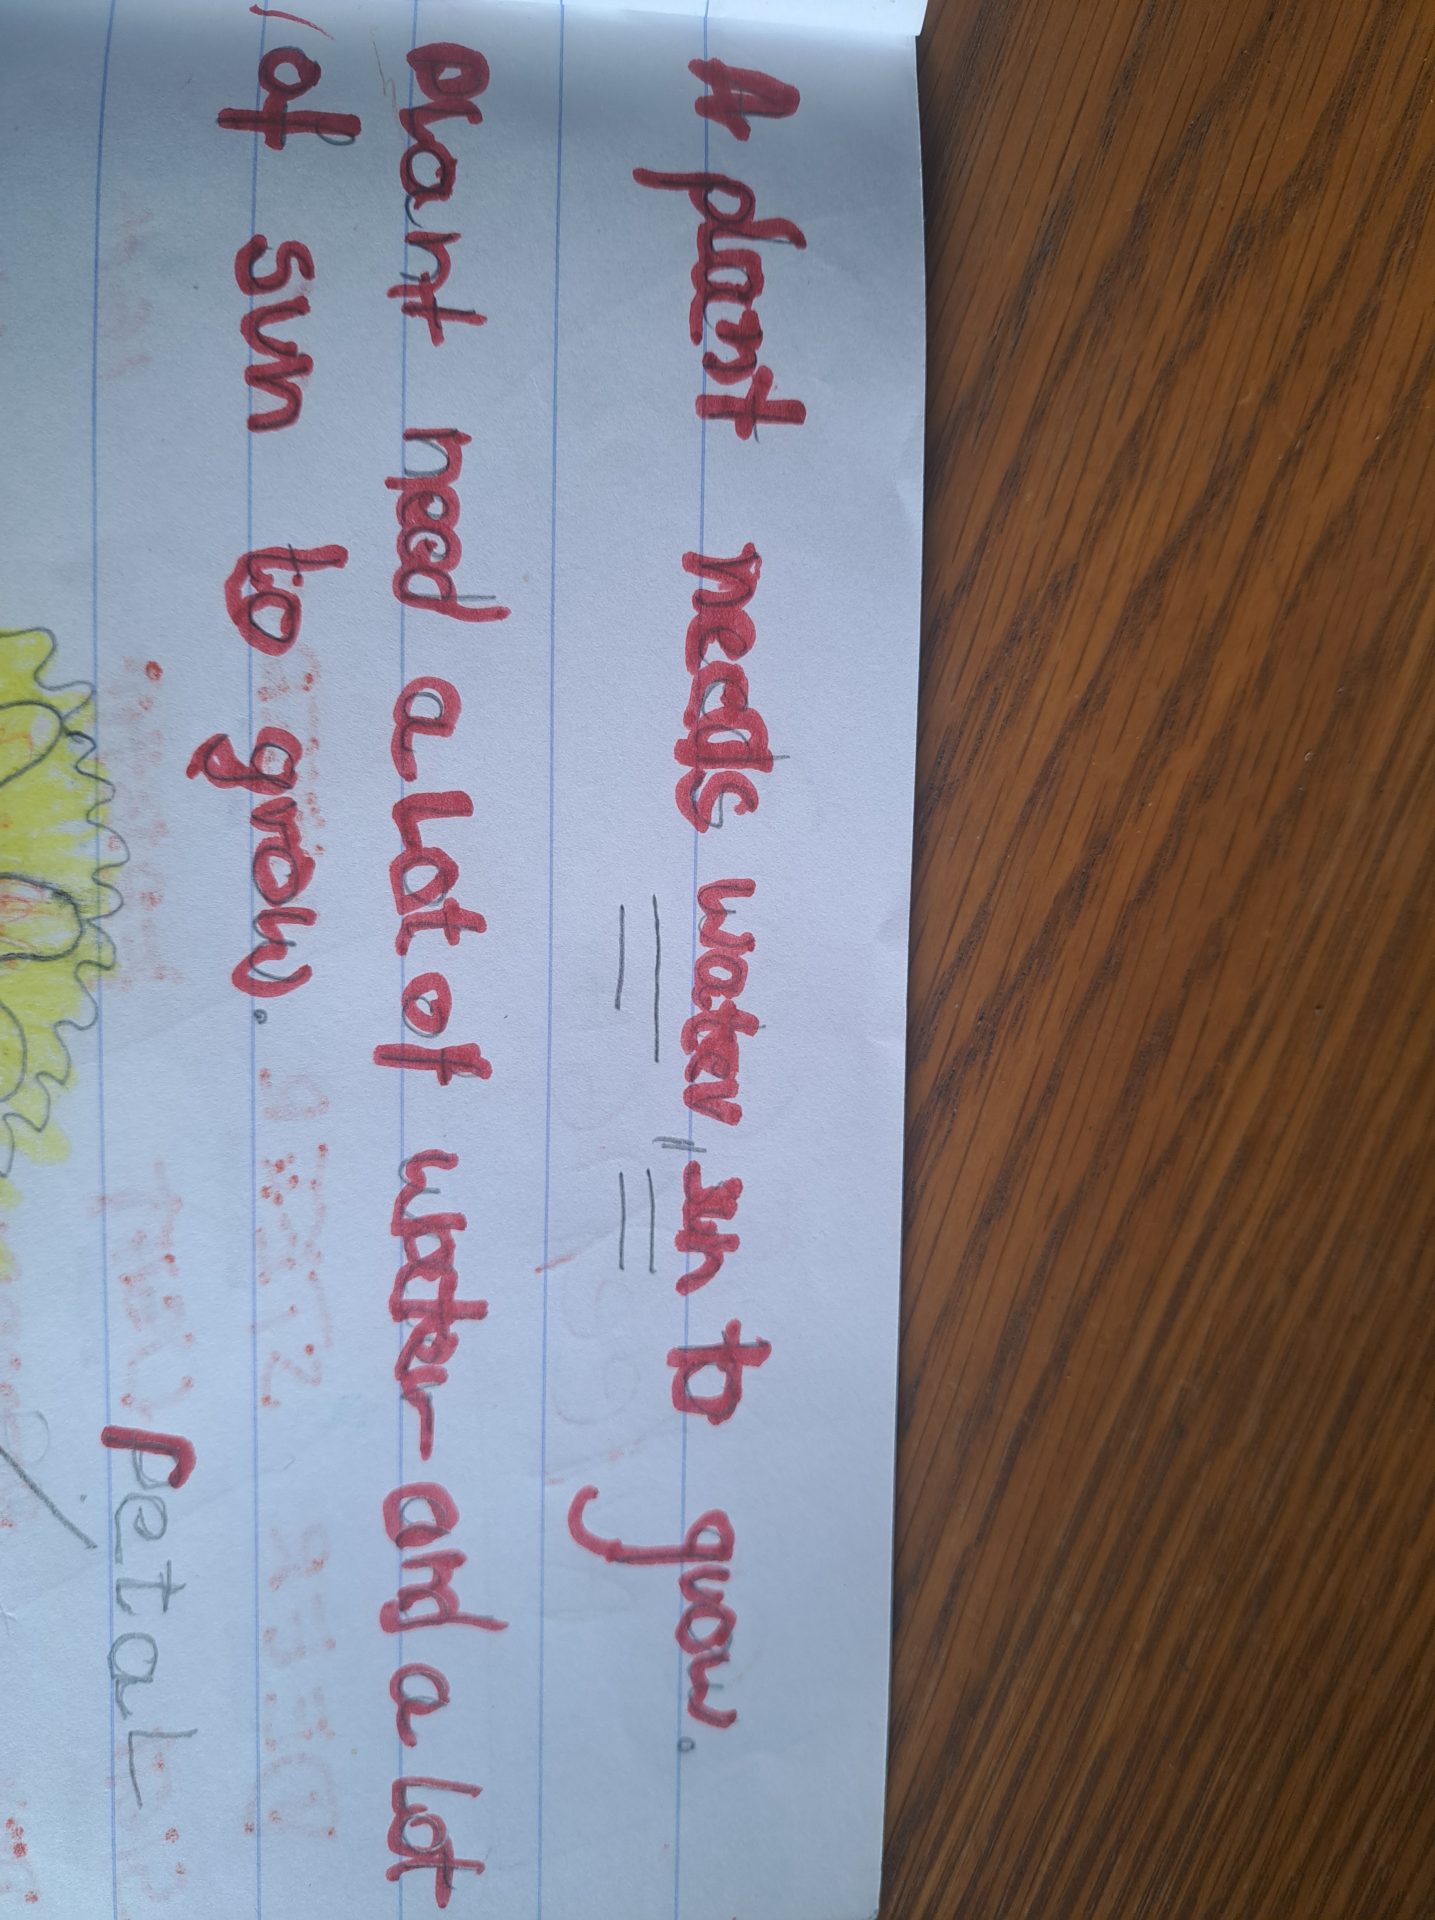 A plant needs water, sun to grow.
plant need a Lot of water and a Lot
of sun to grow.
PetaL